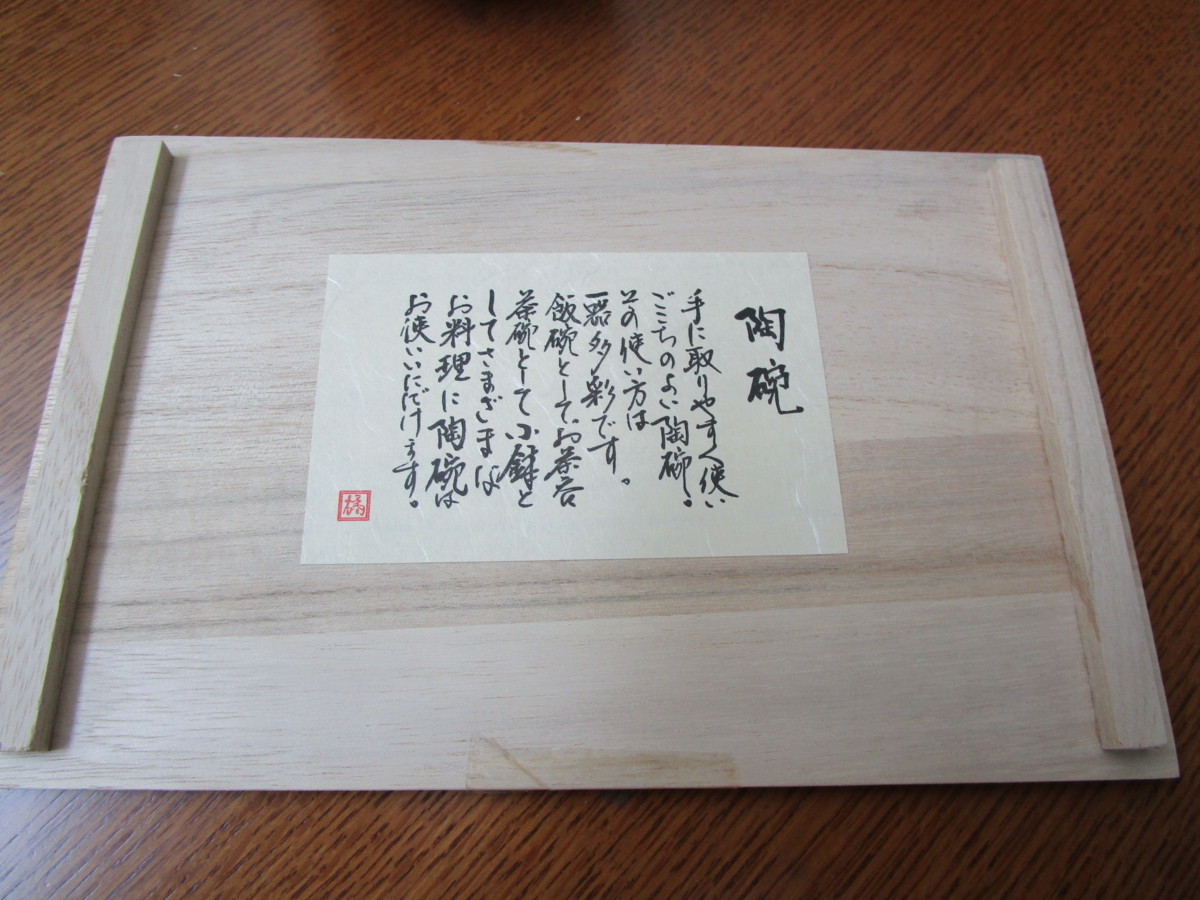 陶碗
手に取りやすく使い
ごこちのよい陶碗。
その使い方は
一器多彩です。
飯碗としてお茶呑
茶碗として小鉢と
してさまざまな
お料理に陶碗は
お使いいただけます。